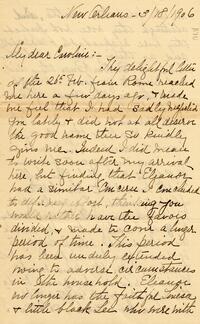 New Orleans - 3/18/1906
My dear Caroline:-
Thy delightful letter
of the 25th Feb. from Rome reached
me here a few days ago, & made
me feel that I had sadly
lately & did not at all deserve
the good name thee so kindly
gives me. Indeed I did mean
to write soon after my arrival
here, but finding that Eleanor
had a similar concern I concluded
to my effort, thinking you
would rather have the favors
divided, & made to cover a longer
period of time. This period
has been unduly extended
owing to adverse circumstances
in the household. Eleanor
no longer has the faithful
& little black who were with